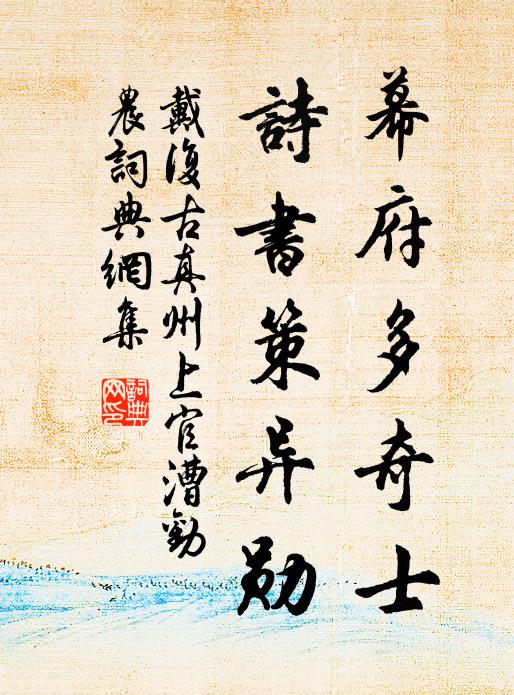 幕府多奇士
詩書策异勋
戴復古真州上官漕勸
農詞典網集
詞典網印